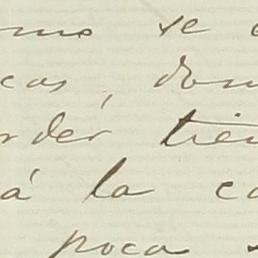 omo se c
cas, don
rder tien
á la ca
poca s